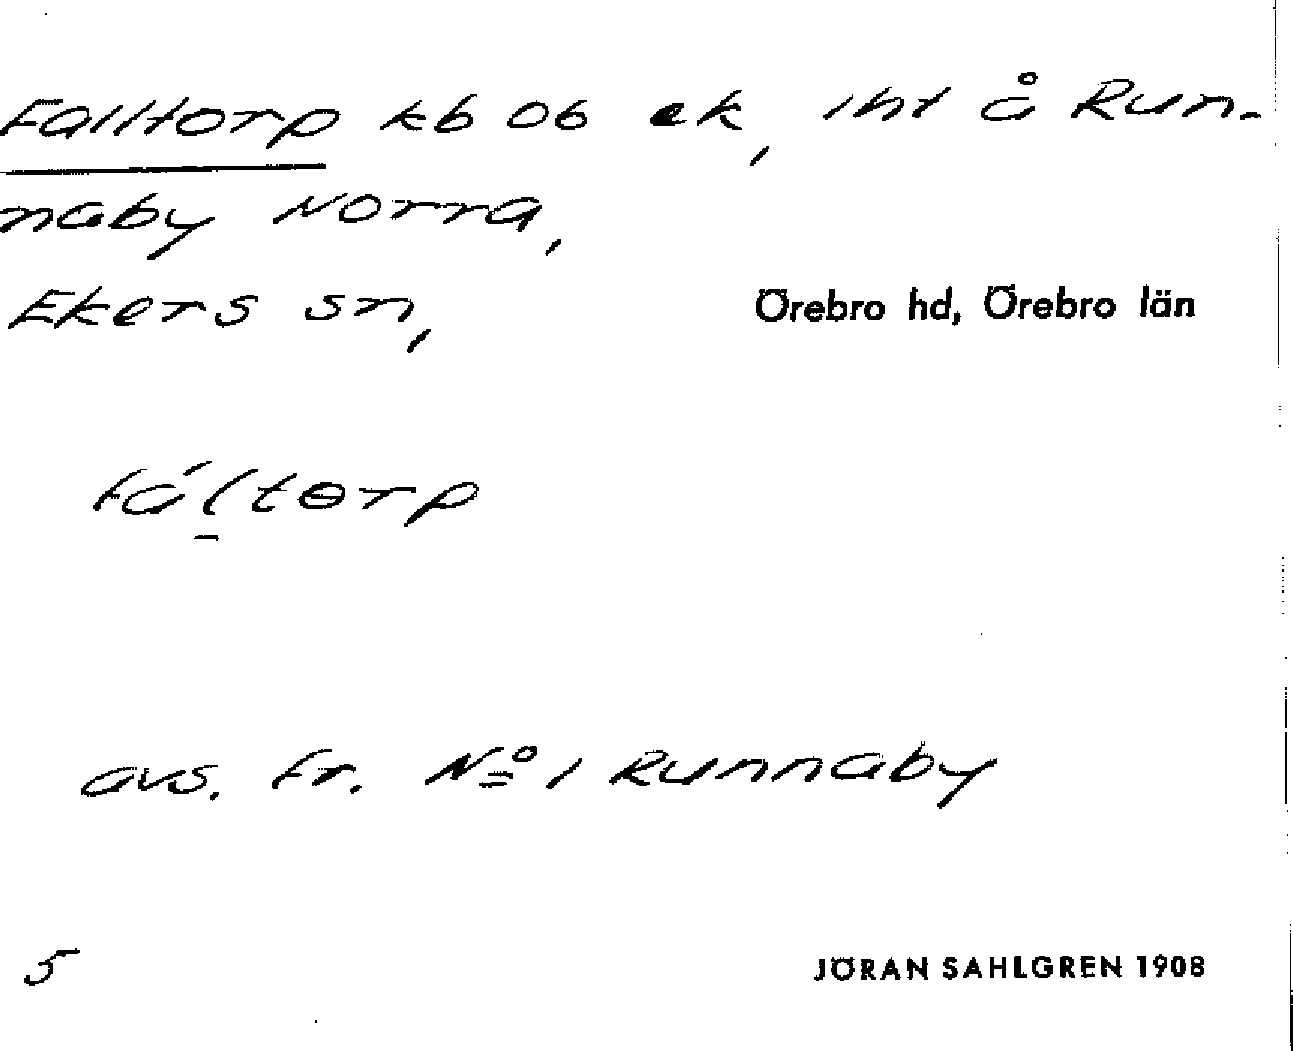 Falltorp kb 06 ek, iht å Run-
naby Norra,
Ekers sn,
Örebro hd, Örebro län
fáltɵrp
avs. fr. Nº 1 Runnaby
5
JÖRAN SAHLGREN 1908